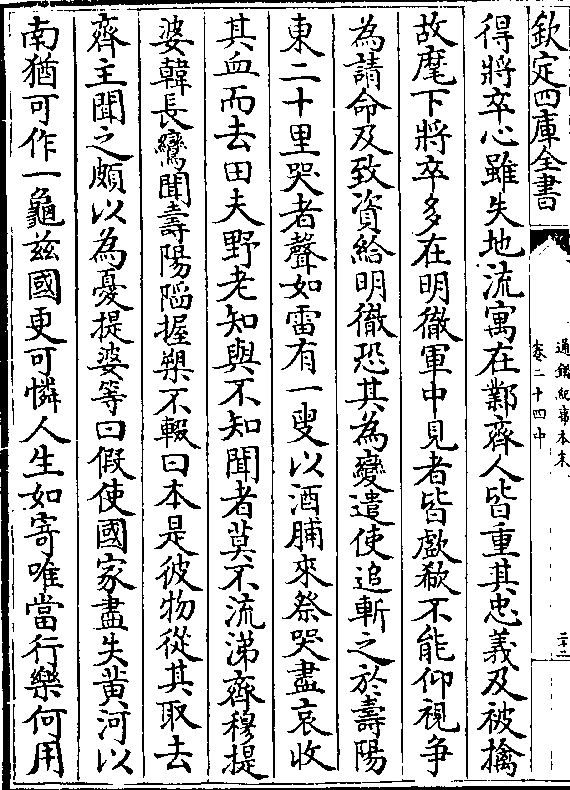 欽定四庫全書
通鑑紀事本末
卷二十四中
二十二
得將卒心雖失地流寓在鄴齊人皆重其忠義及被擒
故麾下將卒多在明徹軍中見者皆歔欷不能仰視爭
為請命及致資給明徹恐其為變遣使追斬之於壽陽
東二十里哭者聲如雷有一叟以酒脯來祭哭盡哀收
其血而去田夫野老知與不知聞者莫不流涕齊穆提
婆韓長鸞聞壽陽䧟握槊不輟曰本是彼物從其取去
齊主聞之頗以為憂提婆等曰假使國家盡失黄河以
南猶可作一龜兹國更可憐人生如寄唯當行樂何用